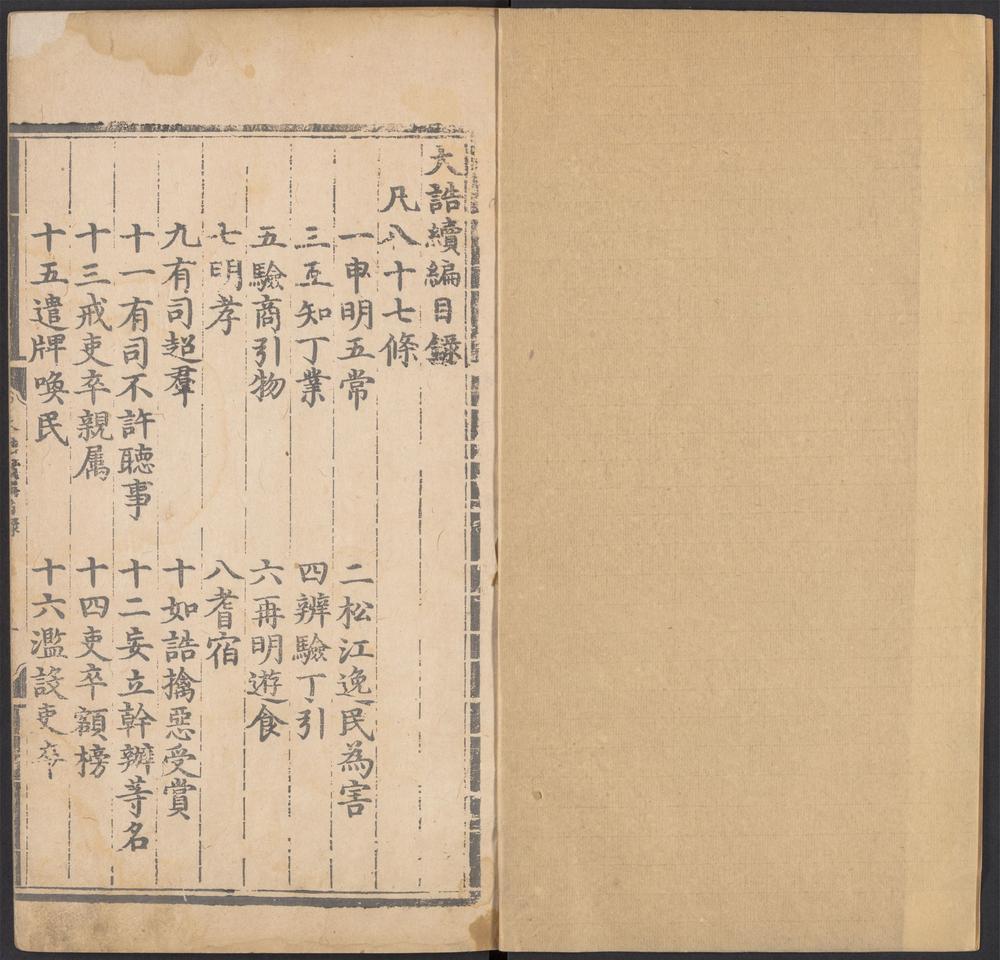 大誥續編目錄
凡八十七條
一申明五常　二松江逸民為害
三互知丁業　四辨驗丁引
五驗商引物　六再明遊食
七明孝　八耆宿
九有司超羣　十如誥擒惡受賞
十一有司不許聽事　十二妄立幹辦等名
十三戒吏卒親属　十四吏卒額榜
十五遣牌喚民　十六濫設吏卒